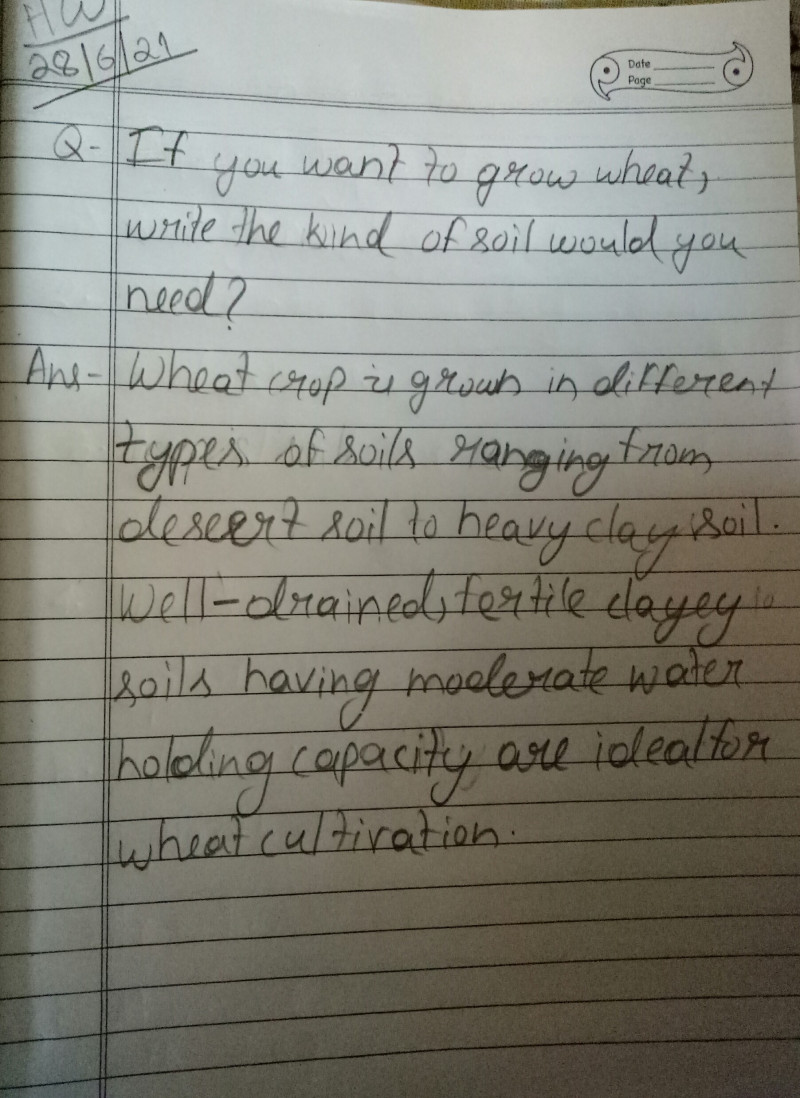 HW
28/6/21
Date
Page
Q- If you want to grow wheat,
write the kind of soil would you
need?
Ans- Wheat crop is grown in different
types of soils ranging from
deseert soil to heavy clay soil.
Well-drained, fertile clayey
soils having moderate water
holding capacity are ideal for
wheat cultivation.